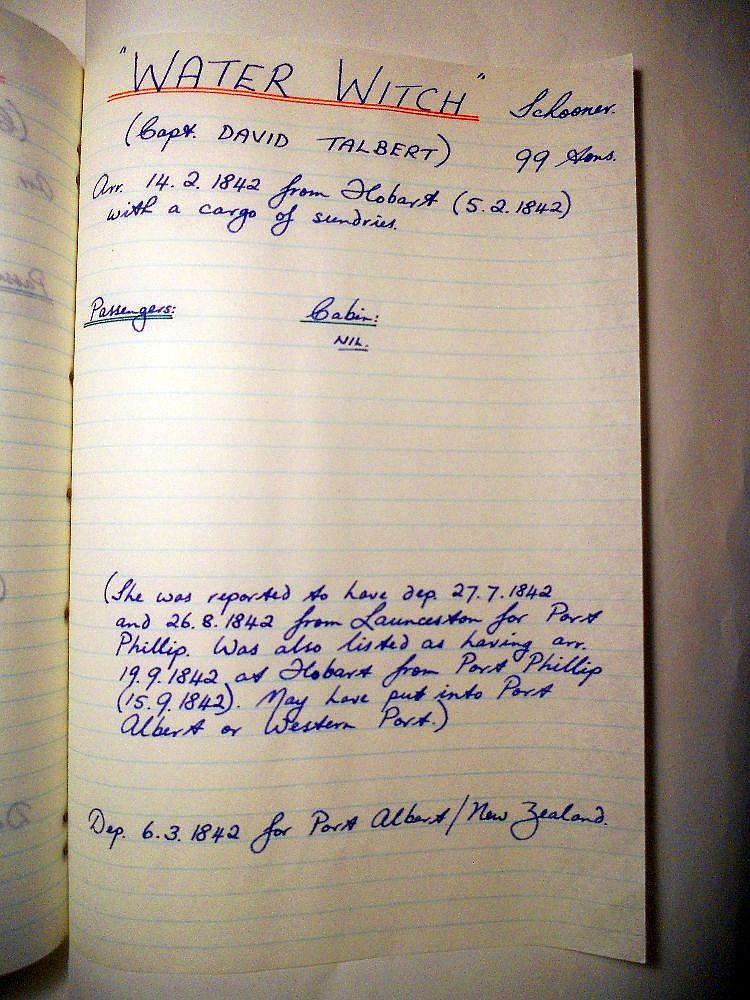 "WATER WITCH" Schooner.
(Capt. DAVID TALBERT) 99 tons.
Arr. 14.2.1842 from Hobart (5.2.1842)
with a cargo of sundries.
Passengers: Cabin:
NIL.
(She was reported to have dep. 27.7.1842
and 26.8.1842 from Launceston for Port
Phillip. Was also listed as having arr.
19.9.1842 at Hobart from Port Phillip
(15.9.1842). May have put into Port
Albert or Western Port.)
Dep. 6.3.1842 for Port Albert/New Zealand.